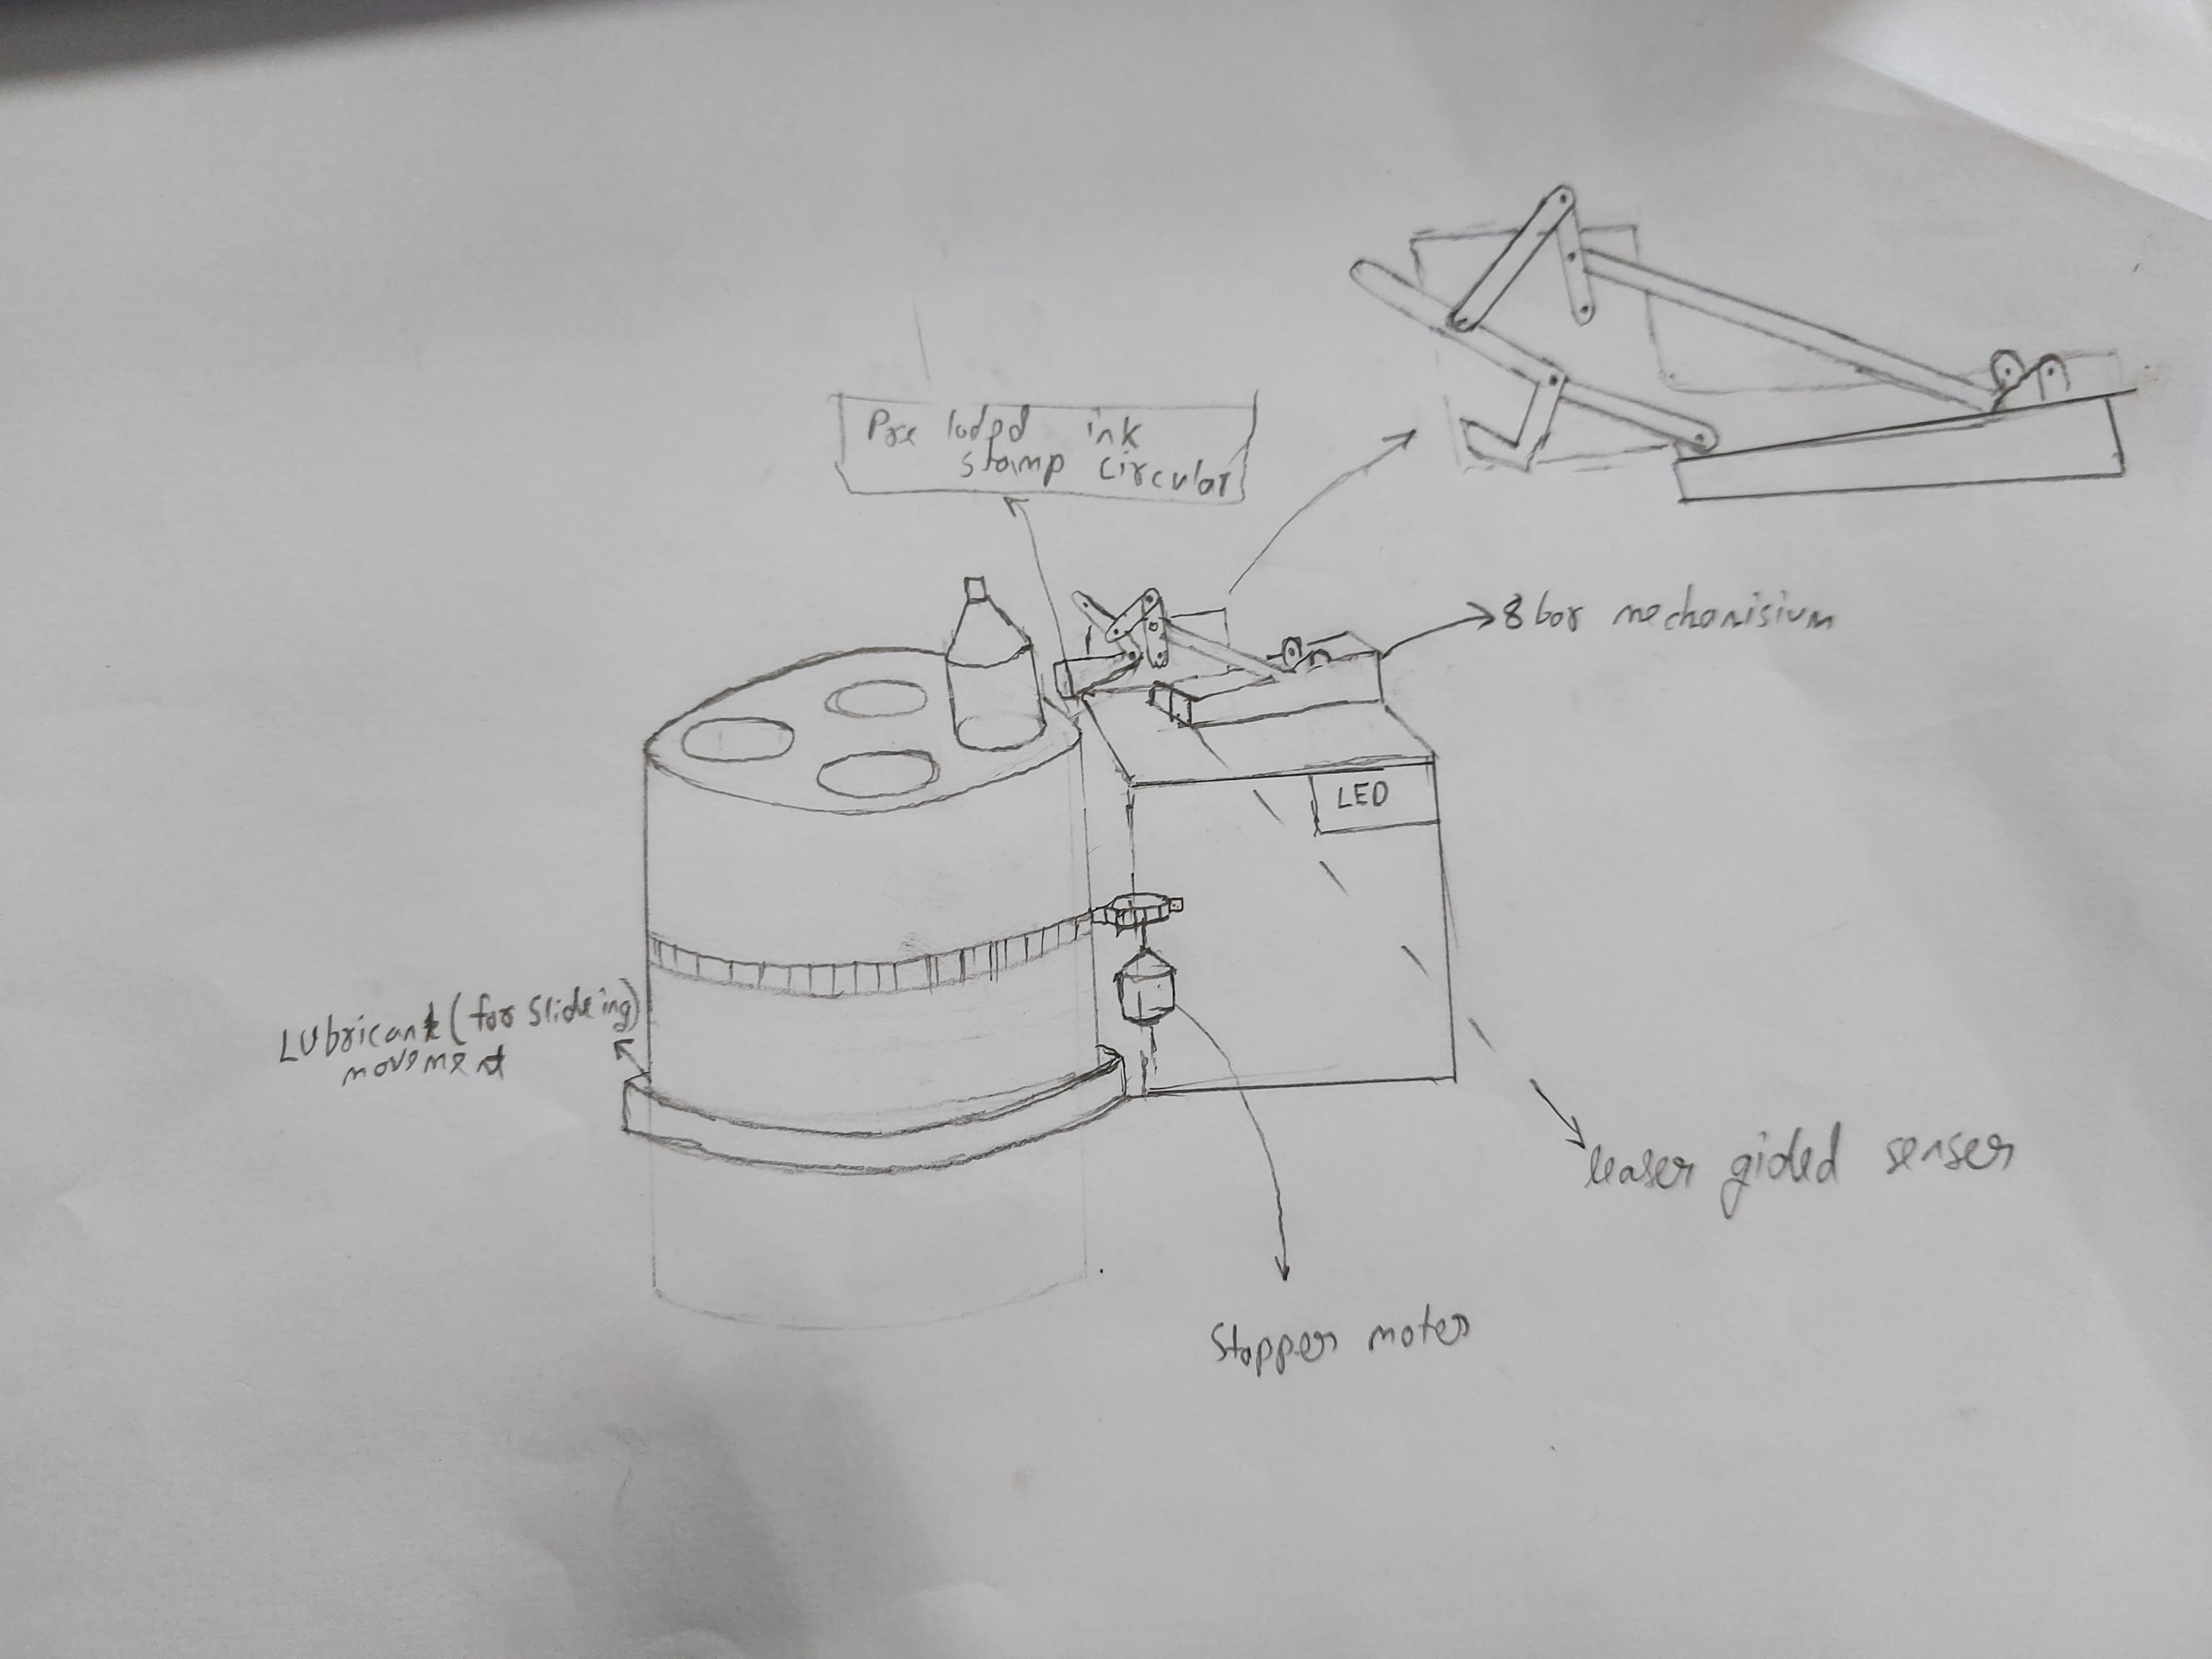 Pre loded ink
stamp circular
8 bar mechanisium
LED
Lubricant (for Slideing)
movement
leaser gided senser
Stepper moter